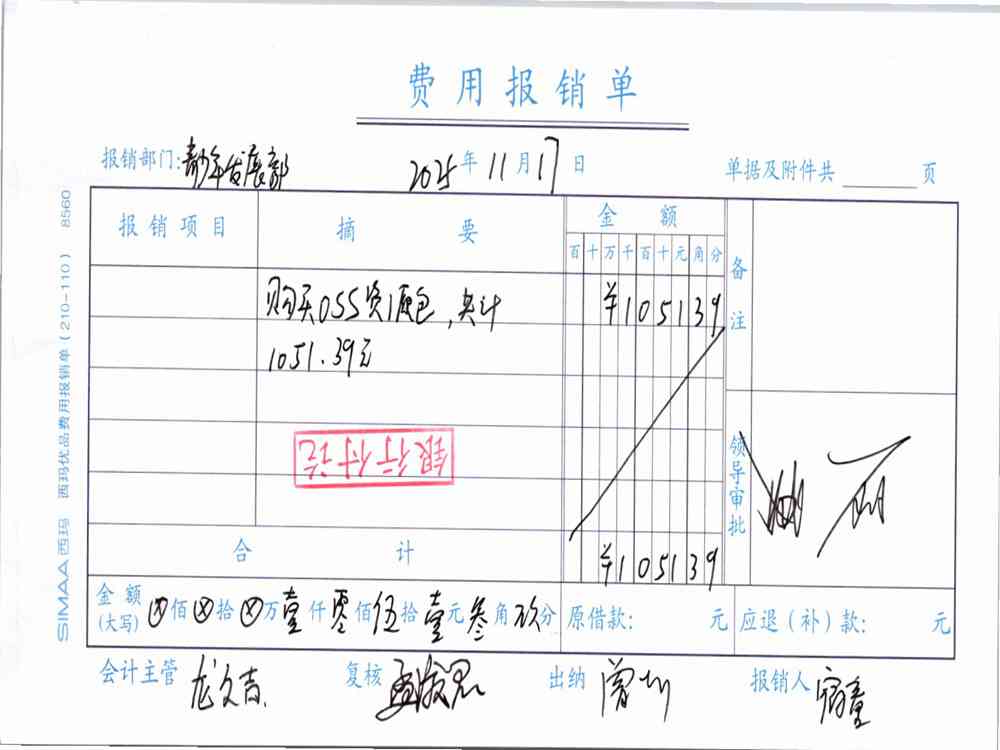 费用报销单
报销部门:青少年发展部 2025年11月17日 单据及附件共 页
报销项目 摘要 金额 备注
百十万千百十元角分
购买OSS资源包,共计 ¥105139
1051.39元
银行付讫
领导审批
合计 ¥105139
金额(大写) ⊗佰⊗拾⊗万壹仟零佰伍拾壹元叁角玖分 原借款: 元 应退(补)款: 元
会计主管 龙文吉 复核 出纳 报销人
SIMAA 西玛 西玛优品费用报销单(210-110) 8560